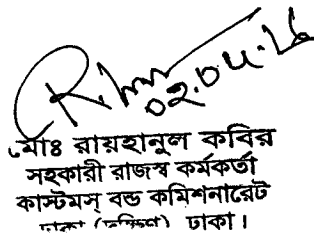 ০২.০৫.১৬
মোঃ রায়হানুল কবির
সহকারী রাজস্ব কর্মকর্তা
কাস্টমস্ বন্ড কমিশনারেট
ঢাকা (দক্ষিণ) ঢাকা।